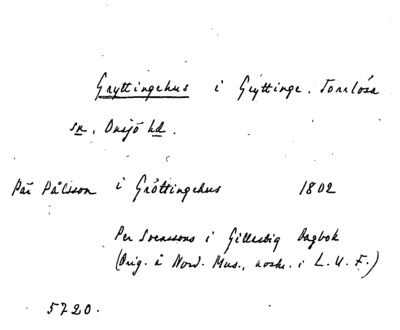 Gryttingehus i Gryttinge. Torrlösa
sn. Onsjö hd.
Pär Pålsson i Gröttingehus 1802
Per Svenssons i Gillastig Dagbok
(Orig. å Nord. Mus., avskr. i L.U.F.)
5720.